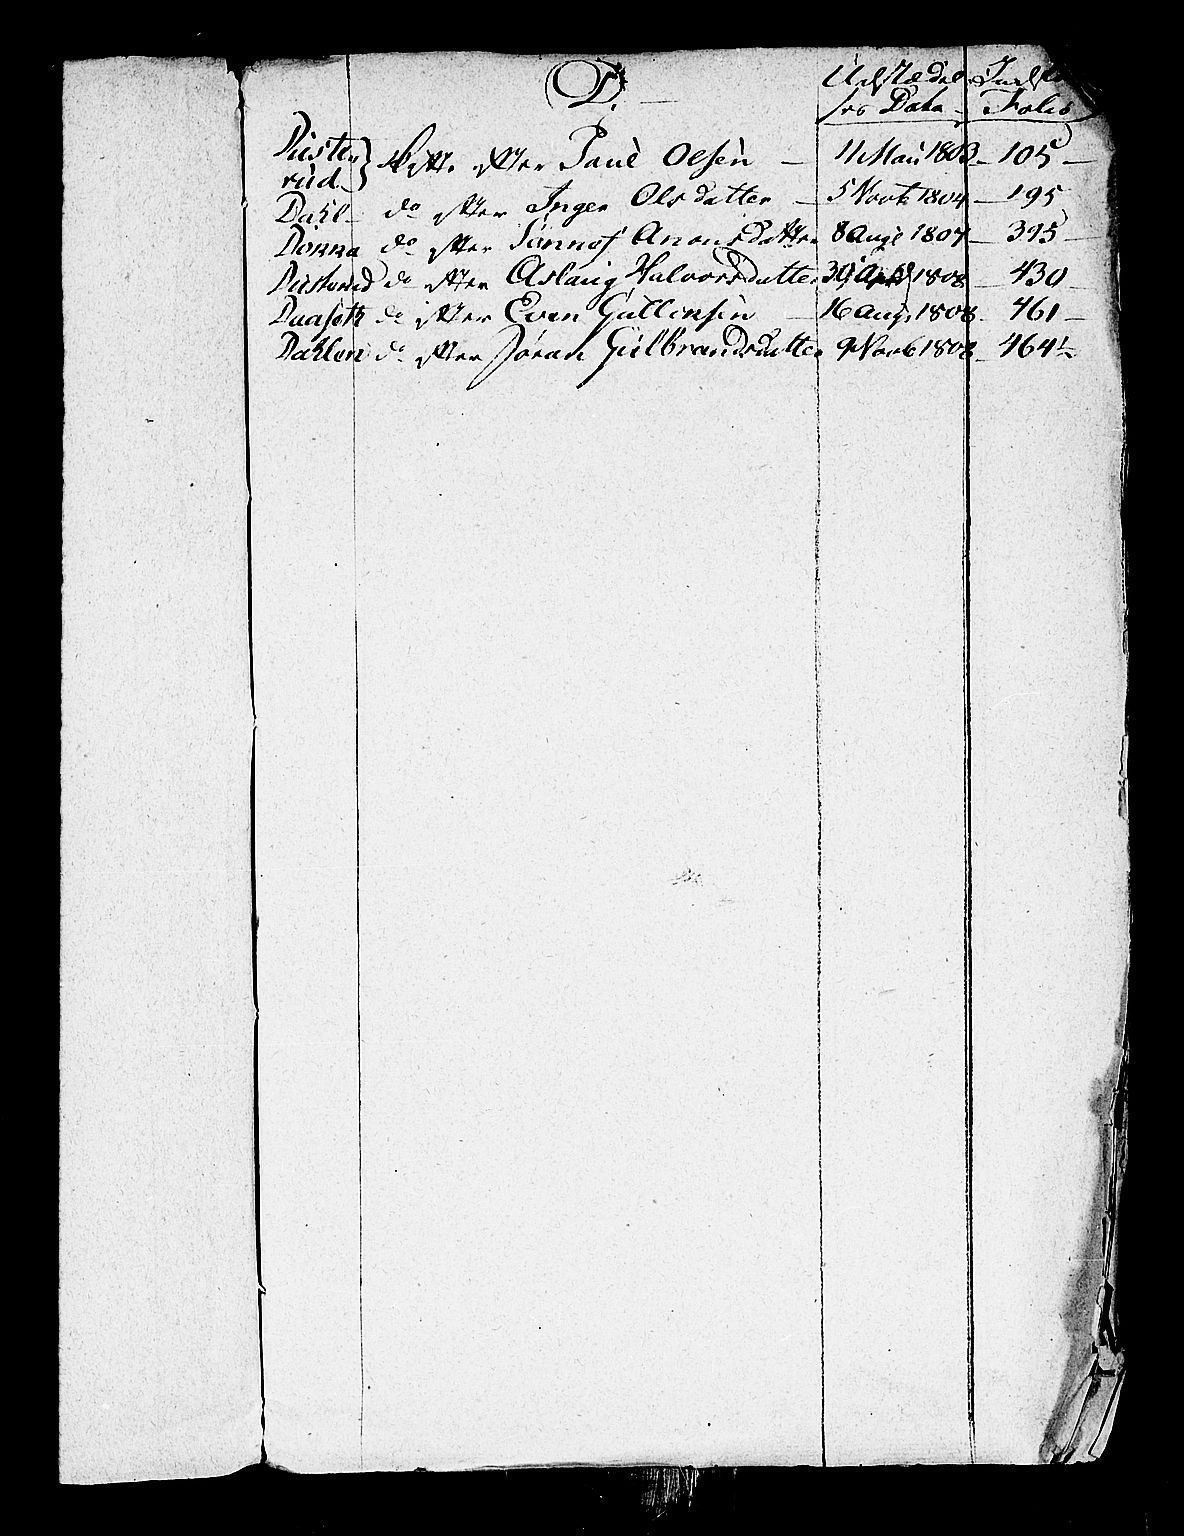 D.
Udstædel Indf
ses Data – Folio
Duste
rud } Skifte efter Poul Olsen – 11 Maii 1803 – 105 –
Dahl – do efter Inger Olsdatter – 5 Novb 1804 – 195
Dokka do efter Sønnof Amundsdatter 8 Augt 1807 – 395 –
Dusterud do efter Aslaug Halvorsdatter 30 April 1808 – 430
Daaseth do efter Even Gullensen – 16 Aug. 1808 – 461 –
Dahlen do efter Jøran Gulbrandsdatter 9 Novb 1808 – 464 ½